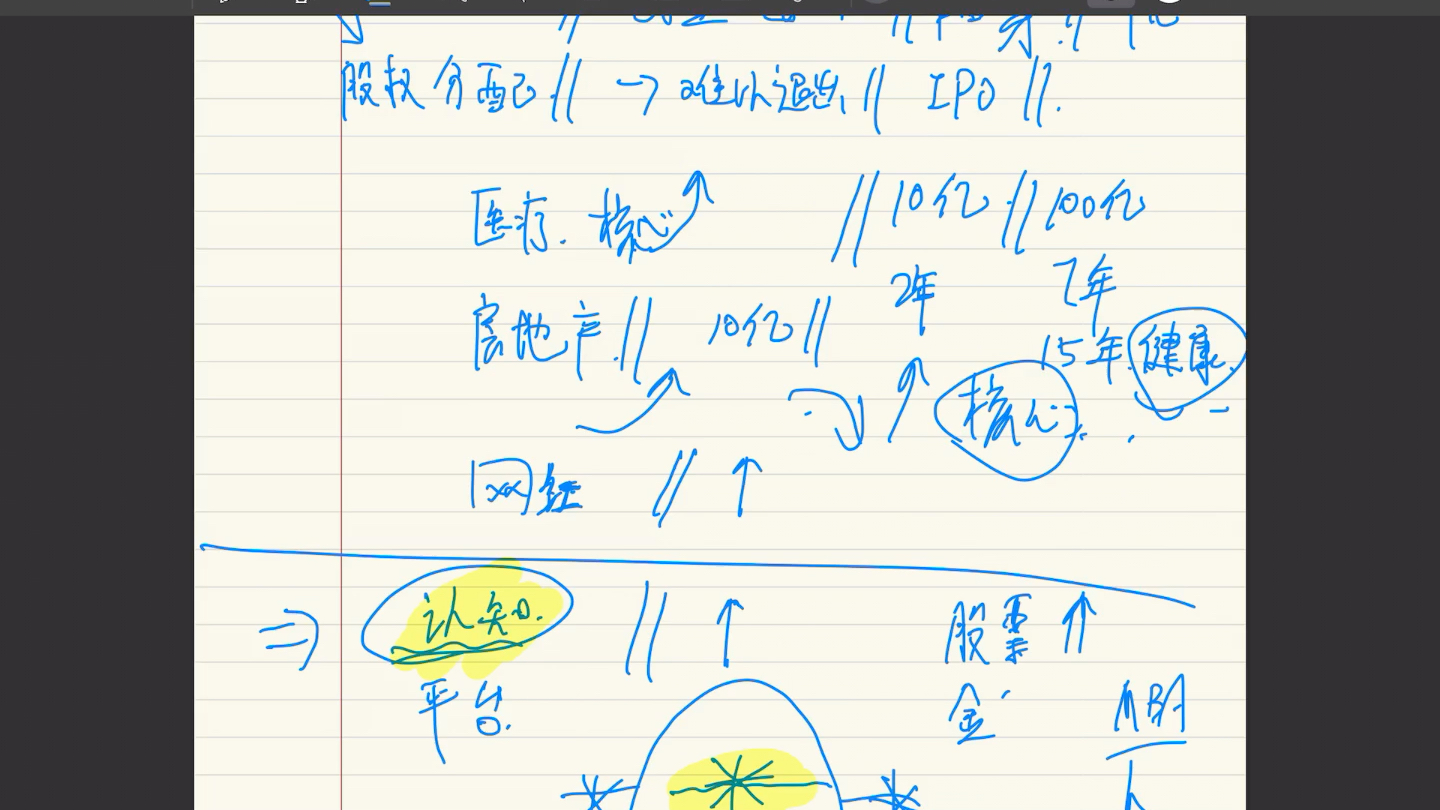 股权分配 // → 难以退出 // IPO //.
医疗. 核心 // 10亿 // 100亿
2年 7年
房地产 // 10亿 //
15年 健康.
核心
网红 // ↑
⇒ 认知. // ↑ 股票 ↑
平台. 金 MBA